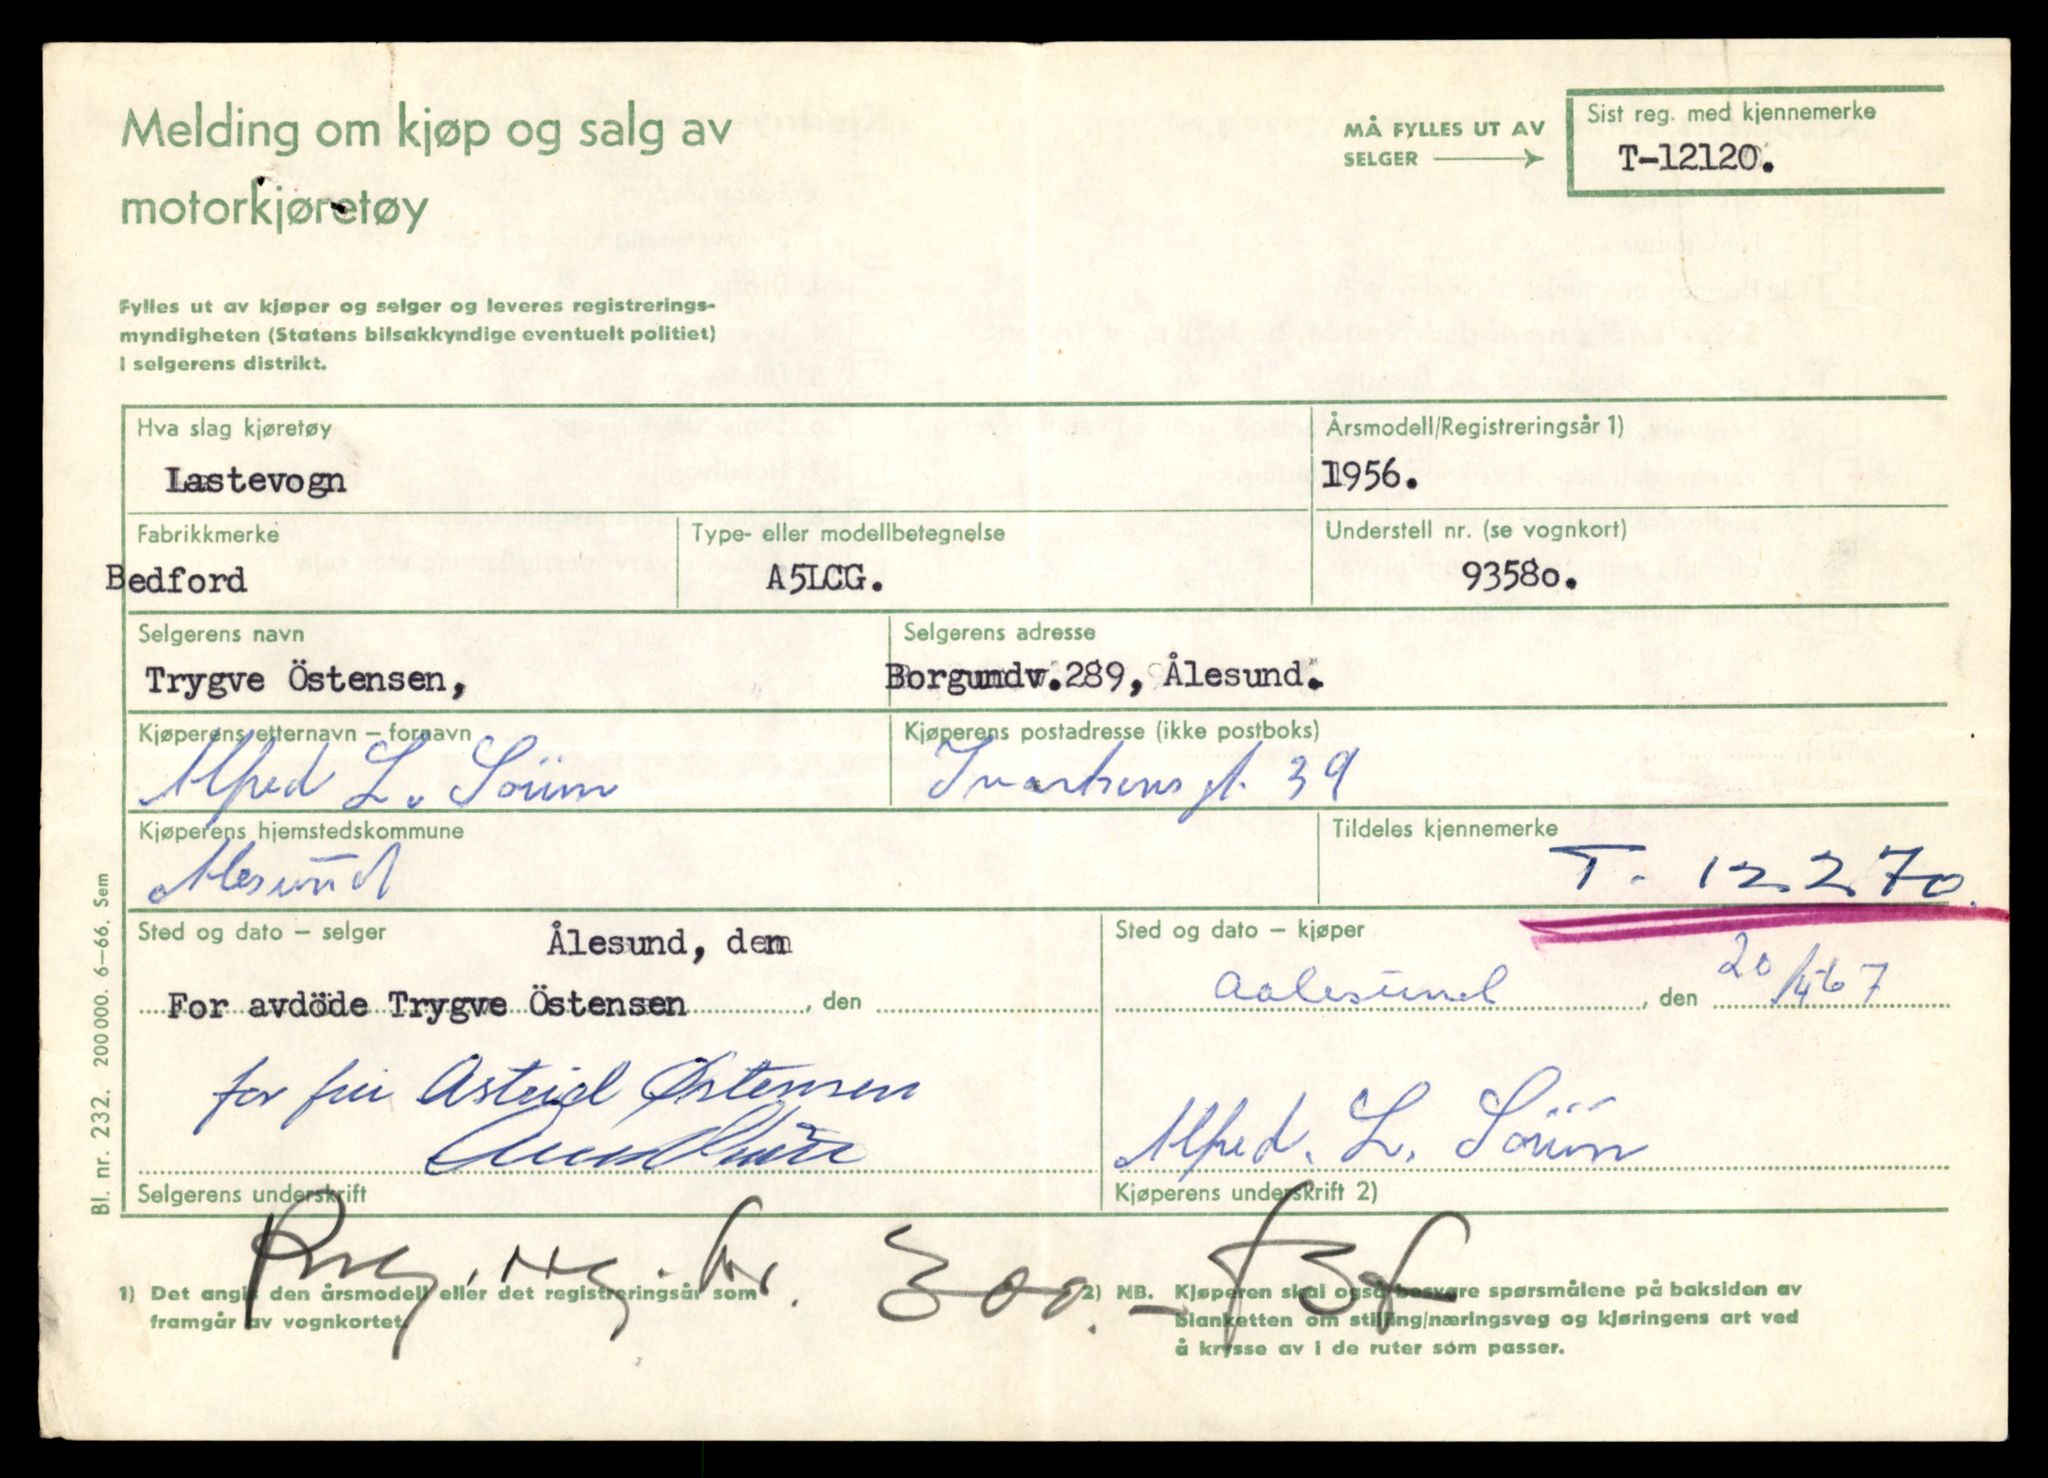 Melding om kjøp og salg av
motorkjøretøy
MÅ FYLLES UT AV
SELGER
Sist reg. med kjennemerke
T-12120.
Fylles ut av kjøper og selger og leveres registrerings-
myndigheten (Statens bilsakkyndige eventuelt politiet)
i selgerens distrikt.
Hva slag kjøretøy
Årsmodell/Registreringsår 1)
Lastevogn
1956.
Fabrikkmerke
Type- eller modellbetegnelse
Understell nr. (se vognkort)
Bedford
A5LCG.
9358o.
Selgerens navn
Selgerens adresse
Trygve Östensen,
Borgundv.289, Ålesund.
Kjøperens etternavn – fornavn
Kjøperens postadresse (ikke postboks)
Alfred L. Söum
39
Kjøperens hjemstedskommune
Tildeles kjennemerke
Alesund
T. 12270.
Sted og dato – selger
Ålesund, den
Sted og dato – kjøper
For avdöde Trygve Östensen, den
Aalesund, den 20/4-67
for fru Astrid Østensen
Alfred. L. Söum
Selgerens underskrift
Kjøperens underskrift 2)
kr. 300.-
1) Det angis den årsmodell eller det registreringsår som
framgår av vognkortet.
2) NB. Kjøperen skal også besvare spørsmålene på baksiden av
blanketten om stilling/næringsveg og kjøringens art ved
å krysse av i de ruter som passer.
Bl. nr. 232. 200 000. 6–66. Sem